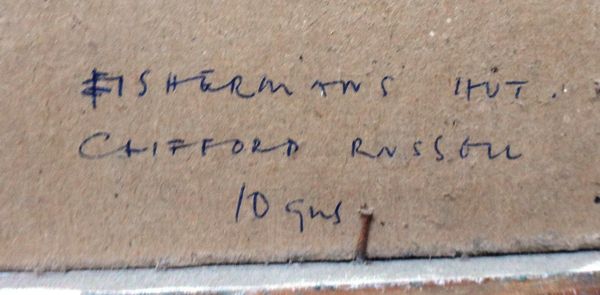 FISHERMANS HUT.
CLIFFORD RUSSELL
10 gns